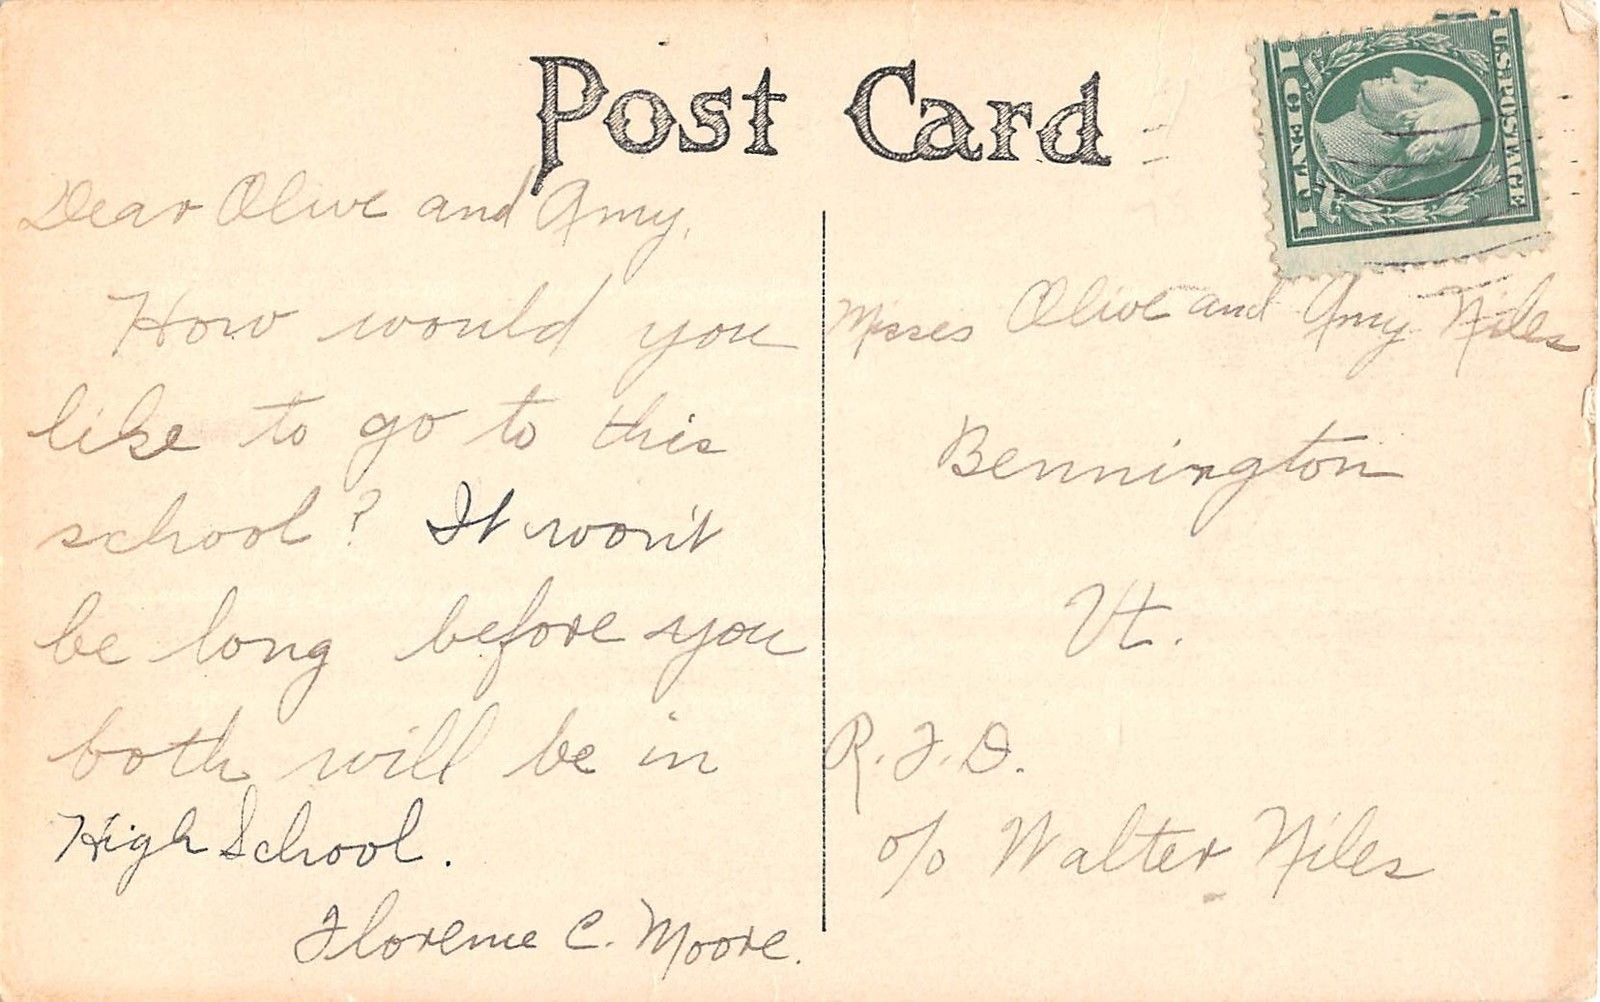 Post Card
U.S. POSTAGE
1 CENT 1
Dear Olive and Amy,
How would you
like to go to this
school? It won't
be long before you
both will be in
High School.
Florence C. Moore.
Misses Olive and Amy Niles
Bennington
Vt.
R.F.D.
o/o Walter Niles